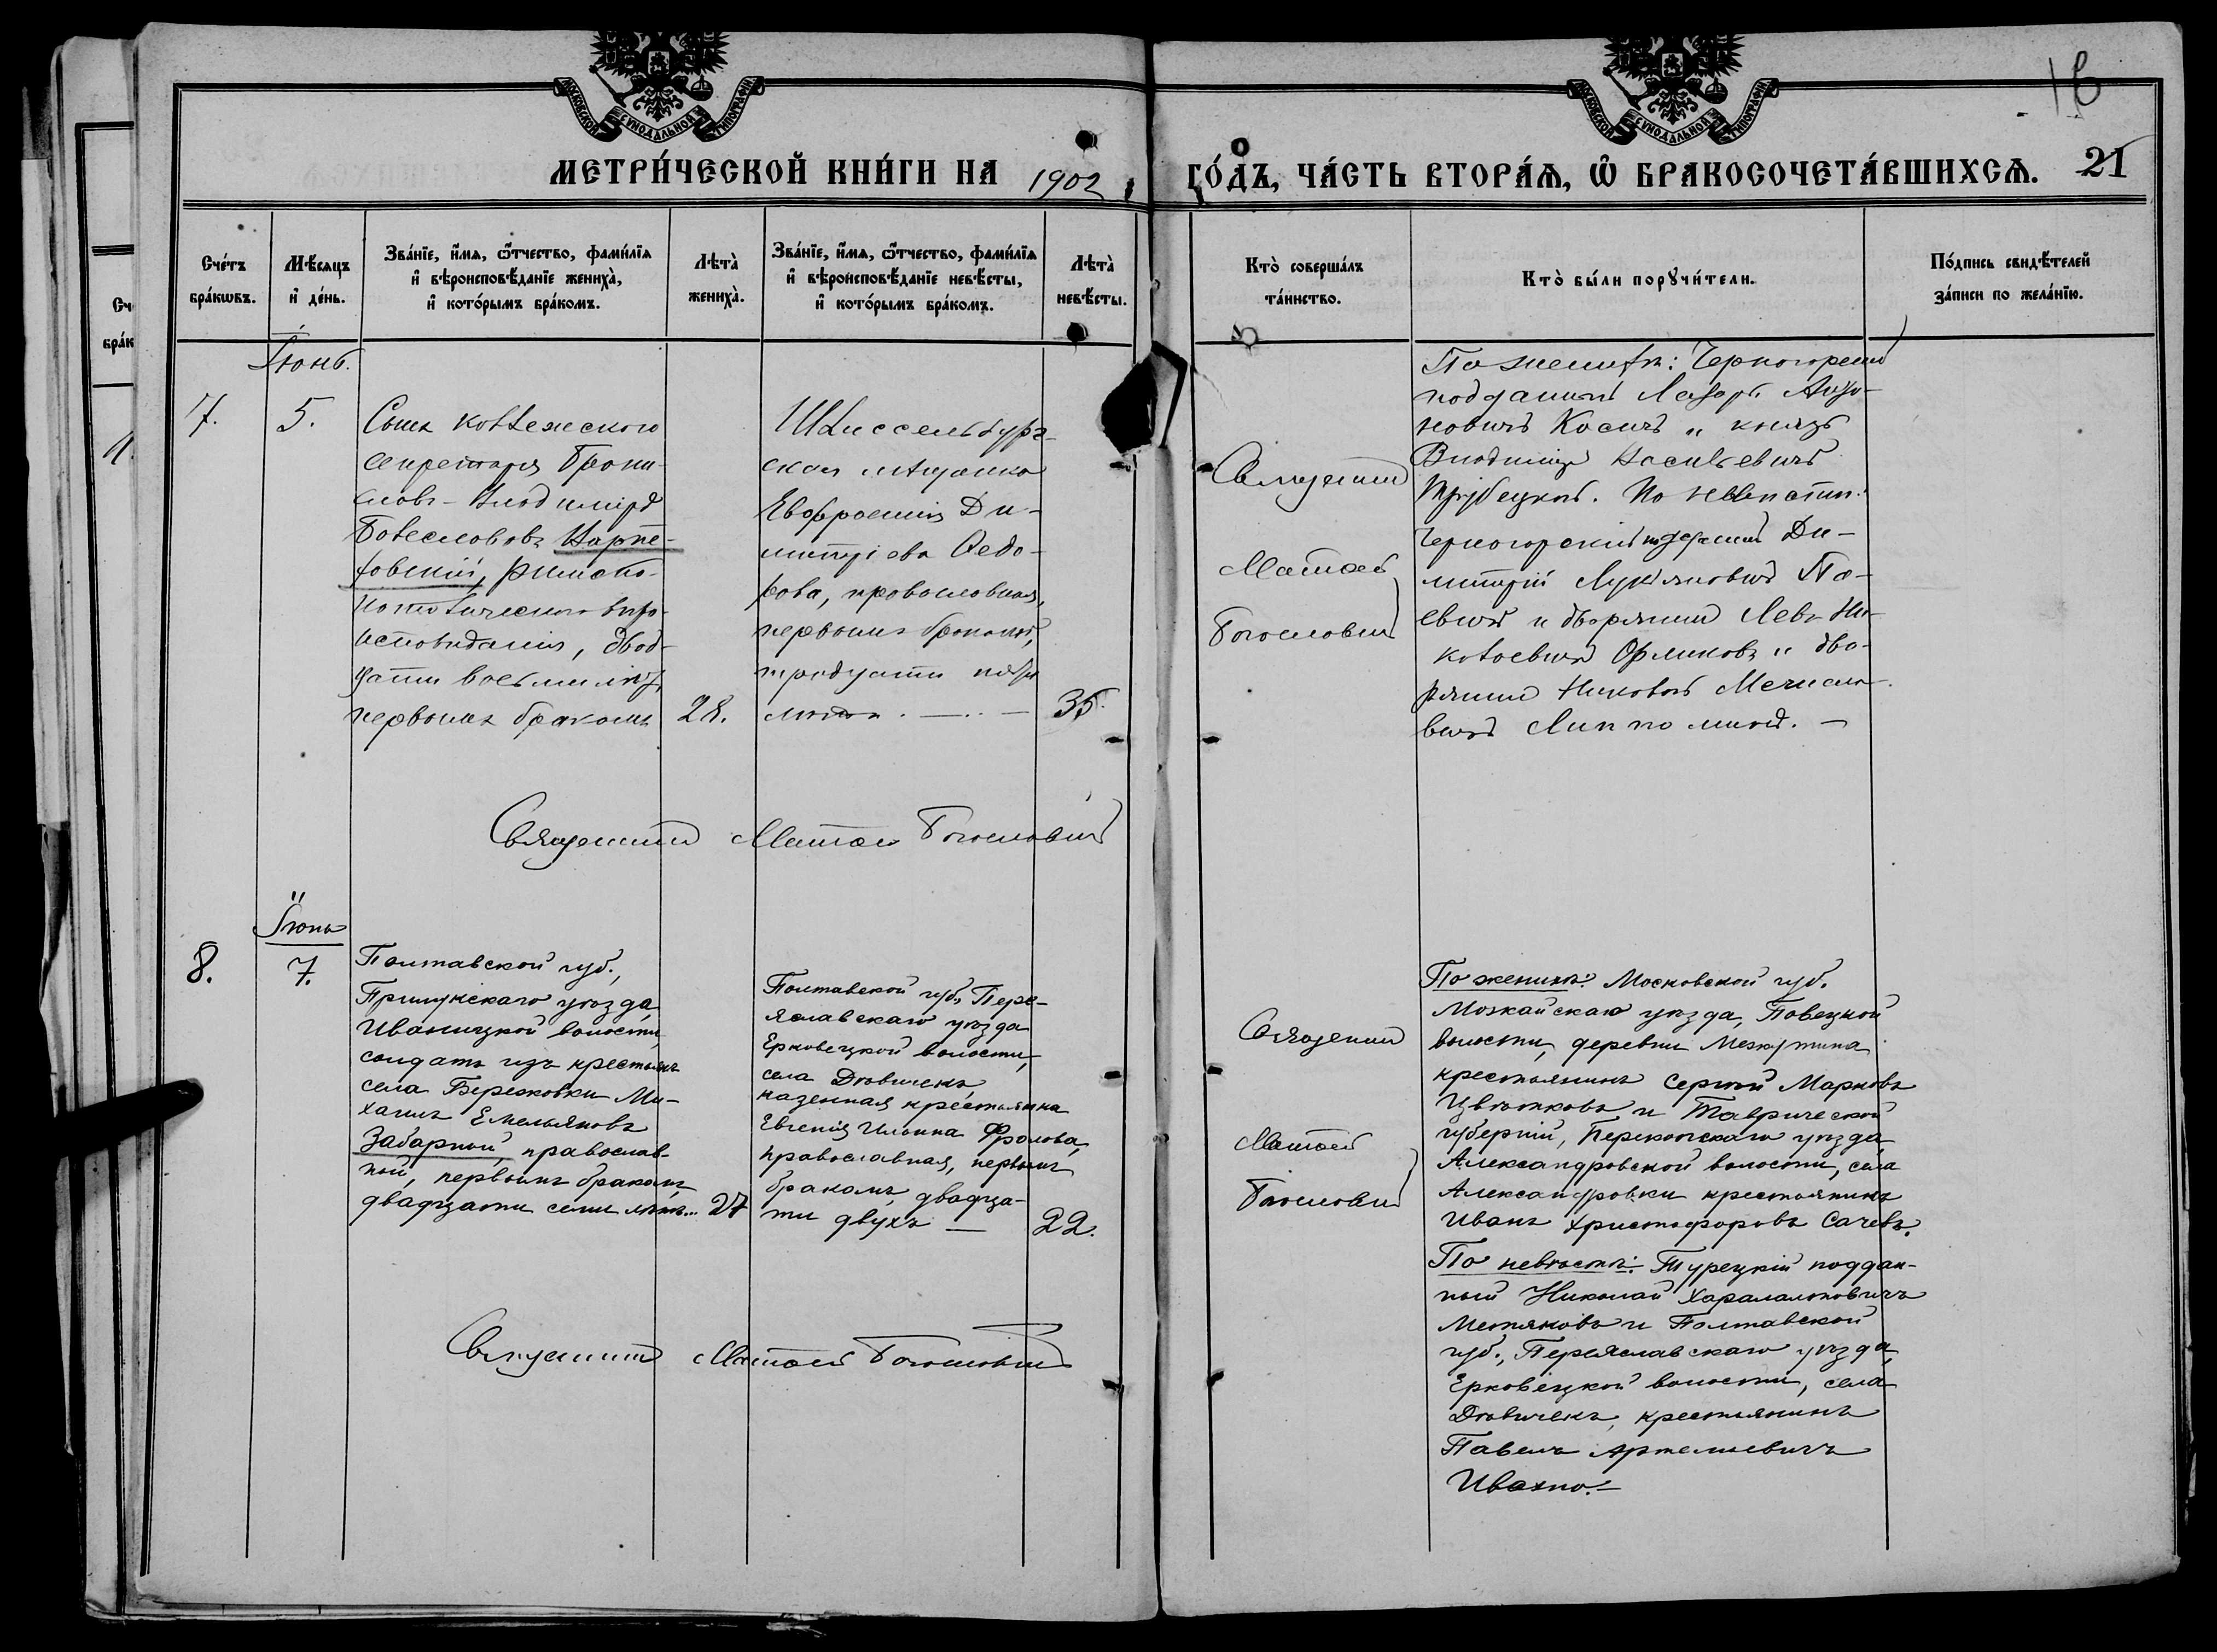 МЕТРИ́ЧЕСКОЙ КНИ́ГИ НА 1902
ГО́ДЪ, ЧА́СТЬ ВТОРА́Ѧ, Ѽ БРАКОСОЧЕТА́ВШИХСѦ. 21
МОСКОВСКОЙ СѴНОДАЛЬНОЙ ТИПОГРАФІИ
МОСКОВСКОЙ СѴНОДАЛЬНОЙ ТИПОГРАФІИ
Сче́тъ бра́кѡвъ.
Мѣ́сѧцъ и҆ де́нь.
Зва́нїе, и҆́мѧ, ѻ҆́тчество, фами́лїѧ
и҆ вѣроисповѣ́данїе жениха̀,
и҆ кото́рымъ бра́комъ.
Лѣта̀ жениха̀.
Зва́нїе, и҆́мѧ, ѻ҆́тчество, фами́лїѧ
и҆ вѣроисповѣ́данїе невѣ́сты,
и҆ кото́рымъ бра́комъ.
Лѣта̀ невѣ́сты.
Кто̀ соверша́лъ та́инство.
Кто̀ бы́ли порꙋчи́тели.
По́дпись свидѣ́телей за́писи по жела́нїю.
Іюнь.
7.
5.
Сынъ коллежскаго
секретаря Брони-
славъ-Владиміръ
Болеславовъ
римско-
католическаго вѣро-
исповѣданія, двад-
цати восьми лѣтъ,
первымъ бракомъ
28.
Шлиссельбург-
ская мѣщанка
Евфросинія Ди-
митріева Ѳедо-
рова, православная,
первымъ бракомъ,
тридцати пяти
лѣтъ. — . . —
35.
Священникъ
Матѳей
Богословскій
По женихѣ: Черногорскій
подданный Лазарь
Косичъ и князь
Владиміръ Васильевичъ
Трубецкой. По невѣстѣ:
Черногорскій подданный Ди-
митрій Лукьяновичъ
и дворянинъ Левъ Ни-
колаевичъ Орликовъ и дво-
рянинъ Николай Мечисла-
вичъ
Священникъ Матѳей Богословскій
Іюнь
8.
7.
Полтавской губ.,
Прилукскаго уѣзда,
Иваницкой волости,
солдатъ изъ крестьянъ
села Бережовки Ми-
хаилъ Емельяновъ
Забарный, православ-
ной, первымъ бракомъ,
двадцати семи лѣтъ...
27
Полтавской губ., Пере-
яславскаго уѣзда
Ерковецкой волости,
села Дѣвичекъ
казенная крестьянка
Евгенія Ильина Фролова,
православная, первымъ
бракомъ, двадца-
ти двухъ —
22.
Священникъ
Матѳей
Богословскій
По женихѣ: Московской губ.
Можайскаго уѣзда,
волости, деревни
крестьянинъ Сергѣй Марковъ
Цвѣтковъ и Таврической
губерніи, Перекопскаго уѣзда,
Александровской волости, села
Александровки крестьянинъ
Иванъ Христофоровъ Сачевъ.
По невѣстѣ: Турецкій поддан-
ный Николай Хараламповичъ
Метяковъ и Полтавской
губ., Переяславскаго уѣзда,
Ерковецкой волости, села
Дѣвичекъ, крестьянинъ
Павелъ Артемьевичъ
Ивахно. —
Священникъ Матѳей Богословскій